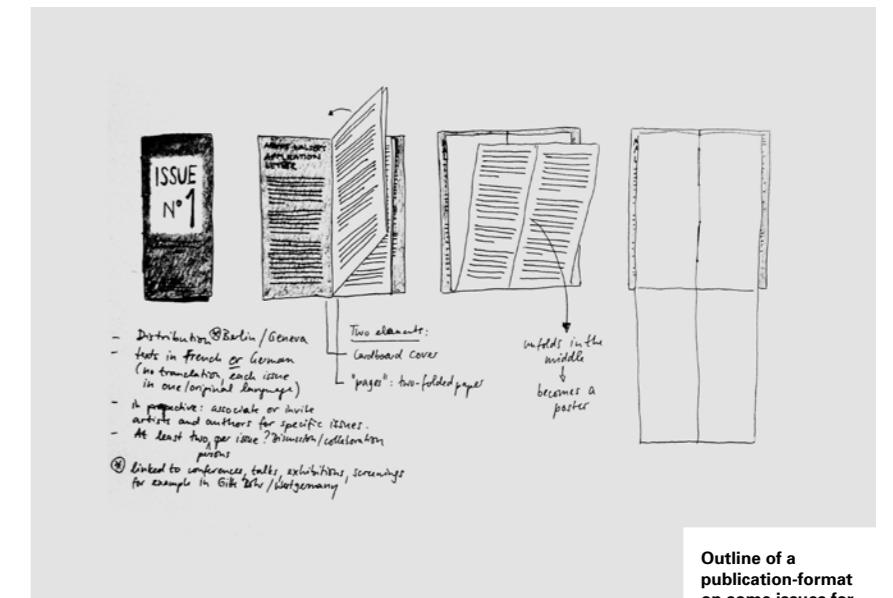 ISSUE
N° 1
APPLICATION
LETTER
- Distribution ⊛ Berlin / Geneva
- texts in French or German
(no translation, each issue
in one/original language)
- in : associate or invite
artists and authors for specific issues.
- At least two persons per issue? Discussion/collaboration
⊛ linked to conferences, talks, exhibitions, screenings
for example in /Westgermany
Two elements:
Cardboard cover
"pages": two-folded paper
unfolds in the
middle
↓
becomes a
poster
Outline of a
publication-format
on some issues for